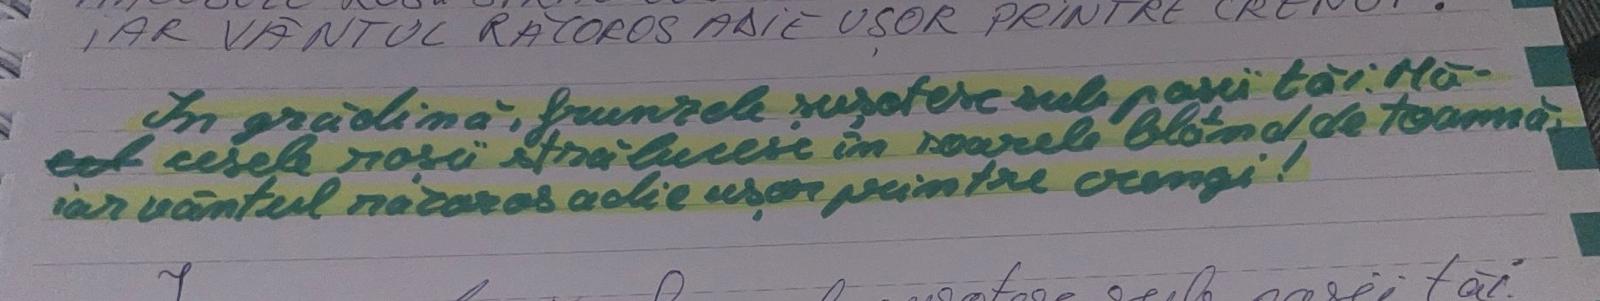 , IAR VÂNTUL RĂCOROS ADIE UȘOR PRINTRE
În grădină, frunzele șușotesc sub pașii tăi. Mă-
cesele roșii strălucesc în soarele blând, de toamnă,
iar vântul răcoros adie ușor printre crengi!
sub pașii tăi.